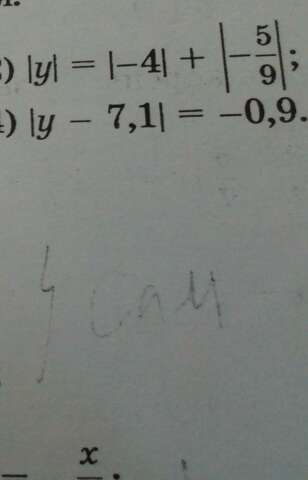 ) |y| = |−4| + |−5/9|;
) |y − 7,1| = −0,9.
x